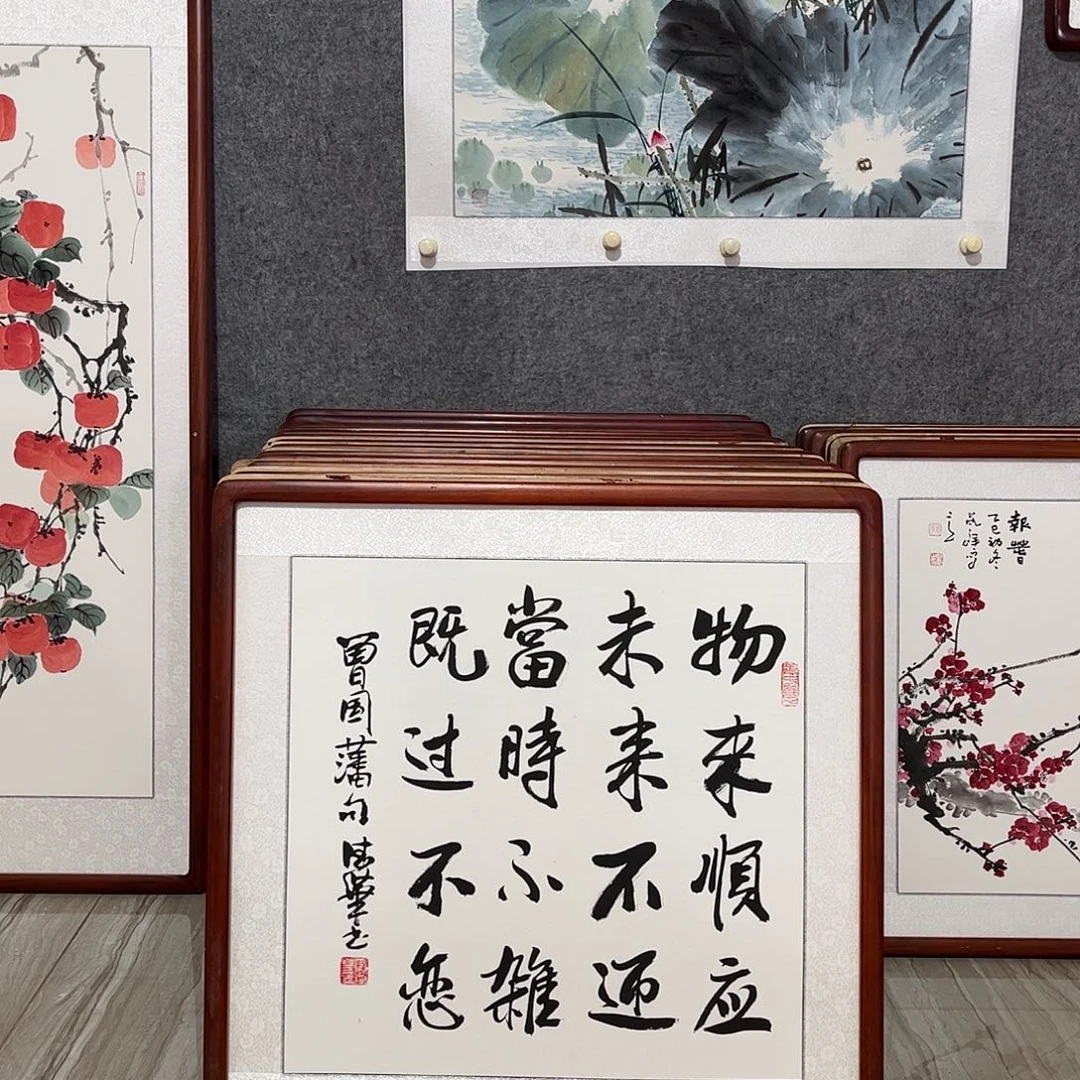 物來順应
未来不迎
當時不雜
既过不恋
曾国藩句
報春
乙巳初冬